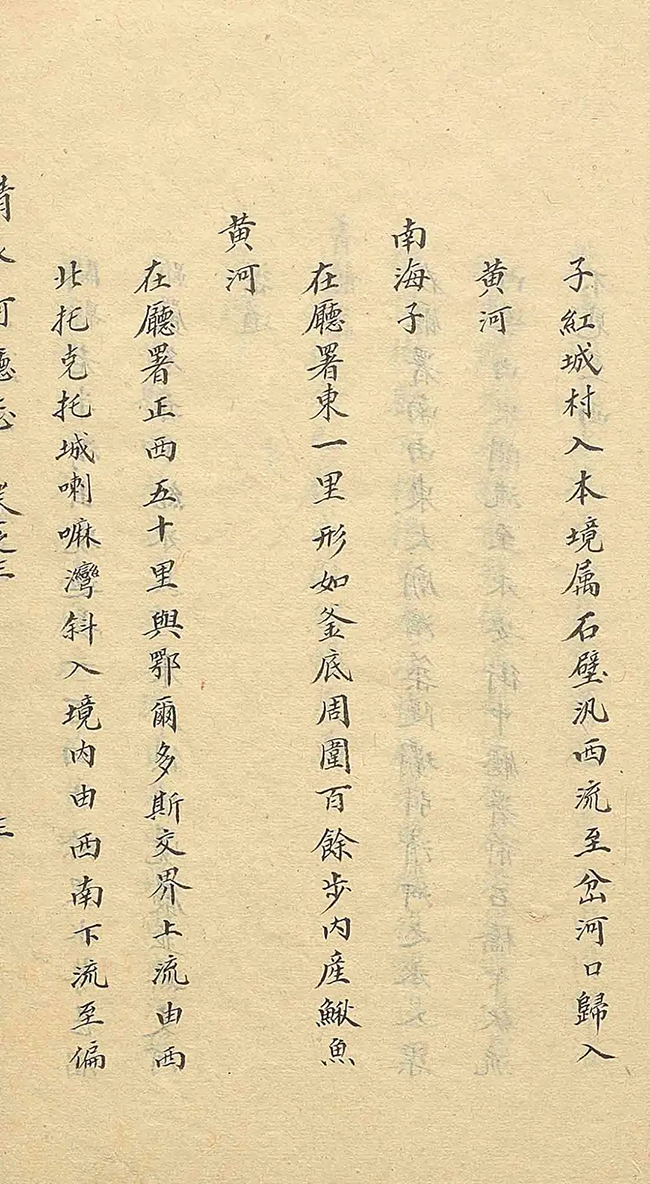 子紅城村入本境属石壁汛西流至岔河口歸入
黄河
南海子
在廳署東一里形如釜底周圍百餘步内産鰍魚
黄河
在廳署正西五十里與鄂爾多斯交界上流由西
北托克托城喇嘛灣斜入境内由西南下流至偏